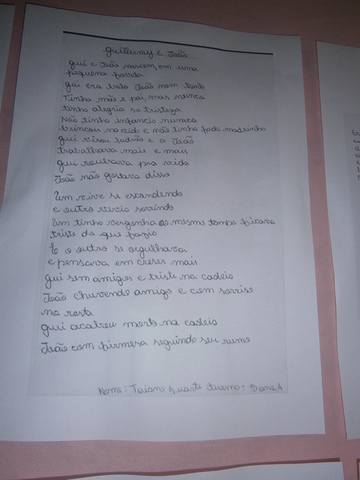 guilherme e João
gui e João nascem, em uma
pequena favela
gui era tralo João nem tanto
Tinha mãe e pai, mas nunca
tinha alegria so tristeza
Não tinha infancia nunca
brincou na vida e não tinha pada madrinha
gui virou ladrão e a João
trabalhava mais e mais
gui roubava pra vida
João não gostava disso
Um vive se escondendo
e outro vivia sorrindo
Um tinha vergonha ao mesmo tempo ficava
triste do que fazio
E o outro se orgulhava
e pensava em creser mais
gui sem amigos e triste na cadeia
João chuvendo amigo e com sorriso
no rosto
gui acabou morto na cadeia
João com firmesa seguindo seu rumo
Nome: Taiane Duarte turno: